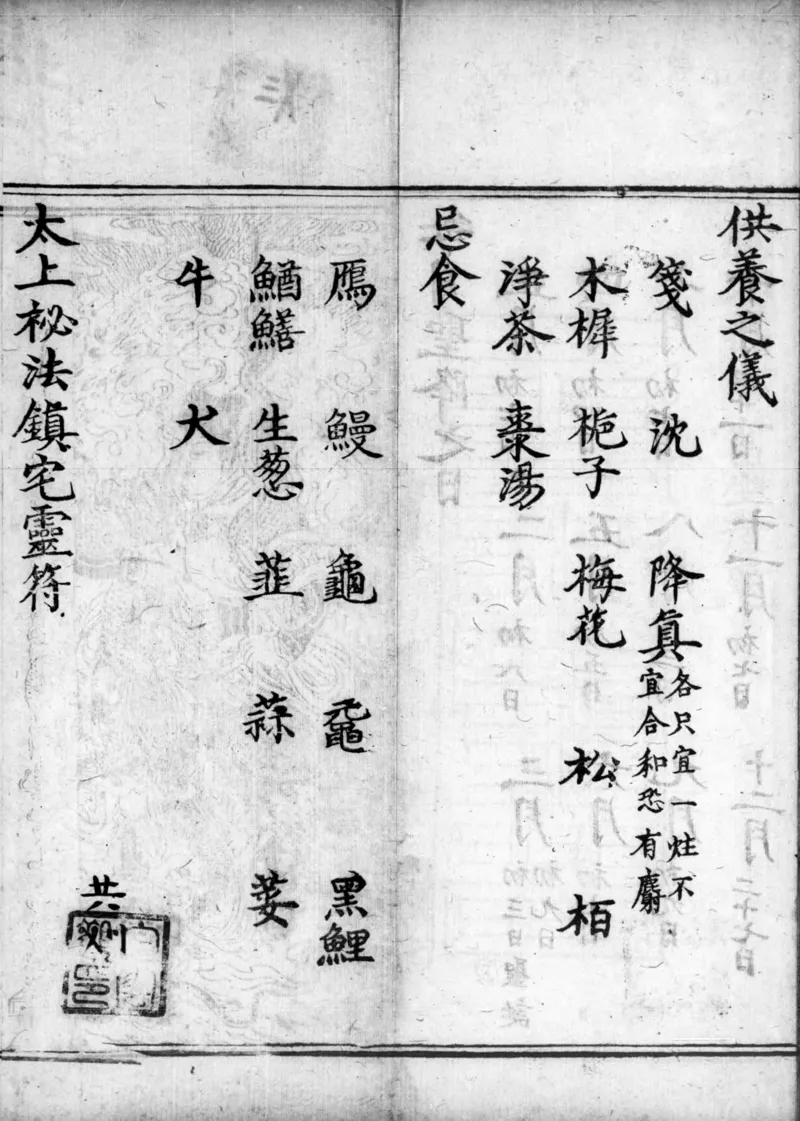 供養之儀
箋 沈 降眞 各只宜一炷不
宜合和恐有麝
木樨 梔子 梅花 松 栢
淨茶 棗湯
忌食
鴈 鰻 龜 黿 黑鯉
鰌鱔 生葱 韮 蒜 荽
牛 犬
共
太上祕法鎮宅靈符